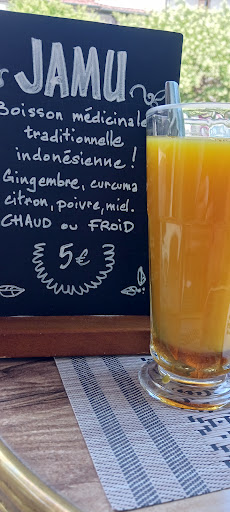 JAMU
Boisson médicinale
traditionnelle
indonésienne !
Gingembre, curcuma
citron, poivre, miel.
CHAUD ou FROiD
5€